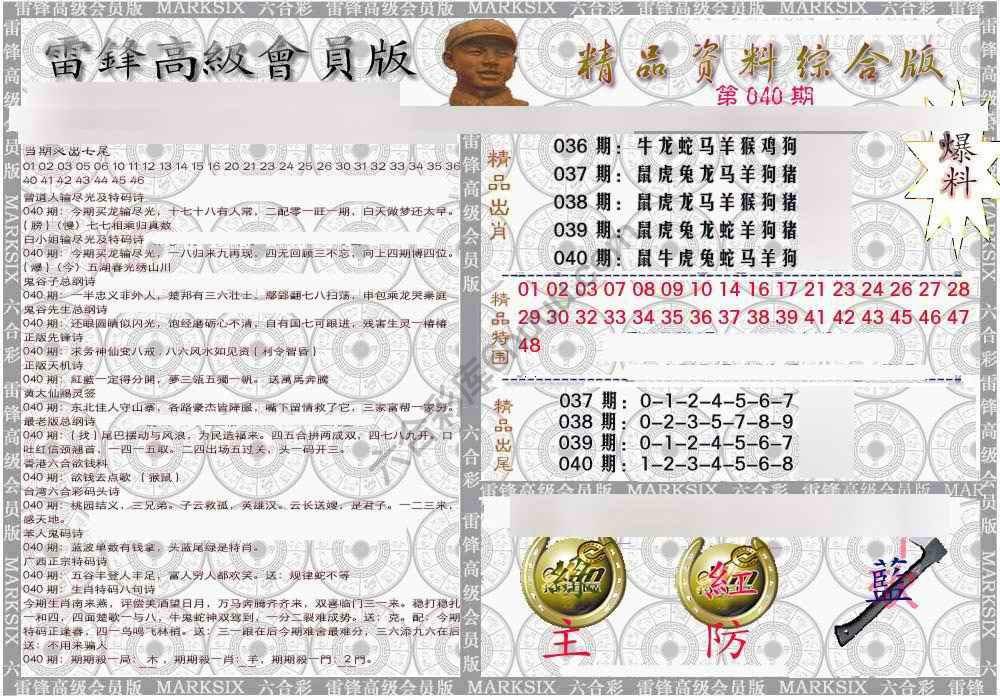 雷锋高级会员版 MARKSIX 六合彩 雷锋高级会员版 MARKSIX 六合彩 雷锋高级会员版
雷鋒高級會員版
精品资料综合版
第 040 期
爆料
当期灾出七尾
01 02 03 05 06 10 11 12 13 14 15 16 20 21 23 24 25 26 30 31 32 33 34 35 36
40 41 42 43 44 45 46
曾道人输尽光及特码诗
040 期：今期买龙输尽光，十七十八有人常，二配零一旺一期，白天做梦还太早。
{ 膀 }（慢）七七相乘归真数
白小姐输尽光及特码诗
040 期：今期买龙输尽光，一八归来九再现，四无回顾三不忘，向上四期博四位。
{ 爆 }（今）五湖春光绣山川
鬼谷子总纲诗
040 期：一半忠义非外人，楚邦有三六壮士，鄢郢翻七八扫荡，申包乘龙哭秦庭
鬼谷先生总纲诗
040 期：还眼圆睛似闪光，饱经磨砺心不清，自有国七可跟进，残害生灵一椿椿
正版先锋诗
040 期：求务神仙变八戒，八六风水如见资 { 利令智昏 }
正版天机诗
040 期：紅藍一定得分開，夢三瓴五獨一帆。 送萬馬奔騰
黄大仙赐灵签
040 期：东北佳人守山寨，各路豪杰皆降服，嘴下留情救了它，三家富帮一家穷。
最老版总纲诗
040 期：{ 找 } 尾巴摆动与风浪，为民造福来。四五合拼两成双，四七八九开。口
吐红信颈翘首，一四一五取。二四出场五过关，头一码开三。
香港六合欲钱料
040 期：欲钱去点歌 {猴鼠}
台湾六合彩码头诗
040 期：桃园结义，三兄弟。子云救孤，英雄汉。云长送嫂，是君子。一二三来，
感天地。
苯人鬼码诗
040 期：蓝波单数有钱拿，头蓝尾绿是特肖。
广西正宗特码诗
040 期：五谷丰登人丰足，富人穷人都欢笑。送：规律蛇不等
040 期：生肖特码八句诗
今期生肖南来燕，评偿美酒望日月，万马奔腾齐齐来，双喜临门三一来。稳打稳扎
一和四，四面楚歌一与八，牛鬼蛇神双驾到，一分二裂难成势。送：克。配：今期
特码正逢春，四一鸟鸣飞林梢。送：三一跟在后今期难舍最难分，三六添九六在后
送：不用来骗人
040 期：期期殺一局：木 ，期期殺一肖：羊，期期殺一門：2 門。
精品出肖
036 期：牛龙蛇马羊猴鸡狗
037 期：鼠虎兔龙马羊狗猪
038 期：鼠虎龙马羊猴狗猪
039 期：鼠虎兔龙蛇羊狗猪
040 期：鼠牛虎兔蛇马羊狗
精品特围
01 02 03 07 08 09 10 14 16 17 21 23 24 26 27 28
29 30 32 33 34 35 36 37 38 39 41 42 43 45 46 47
48
精品出尾
037 期：0-1-2-4-5-6-7
038 期：0-2-3-5-7-8-9
039 期：0-1-2-4-5-6-7
040 期：1-2-3-4-5-6-8
雷锋高级会员版 MARKSIX 六合彩 雷锋高级会员版 MARKSIX
紅
藍
主
防
雷锋高级会员版 MARKSIX 六合彩 雷锋高级会员版 MARKSIX 六合彩 雷锋高级会员版